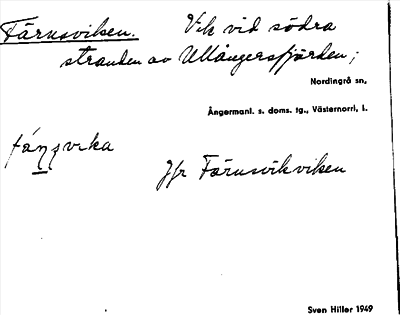 Färnsviken. Vik vid södra
stranden av Ullångersfjärden;
Nordingrå sn,
Ångermanl. s. doms. tg., Västernorrl. l.
Jfr Färnsvikviken
Sven Hiller 1949